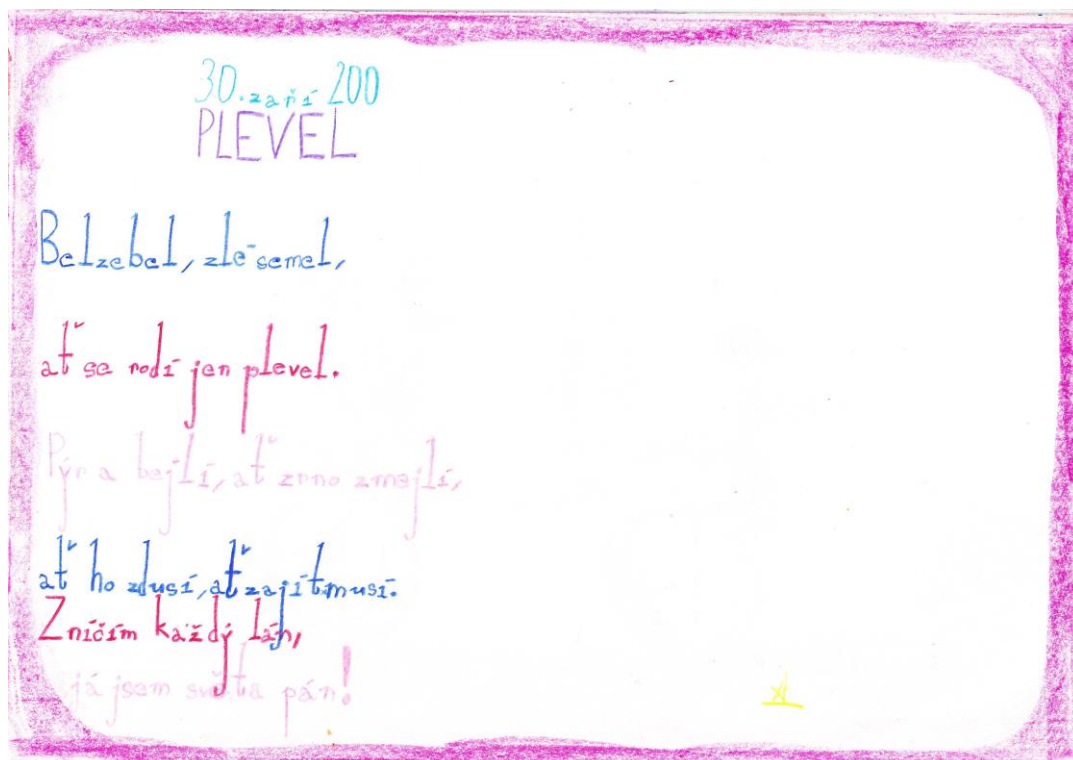 30. září 200
PLEVEL
Belzebel, zlé semel,
ať se rodí jen plevel.
Pýr a bejlí, ať zrno zmejlí,
ať ho zdusí, ať zajít musí.
Zničím každý lán,
já jsem světa pán!